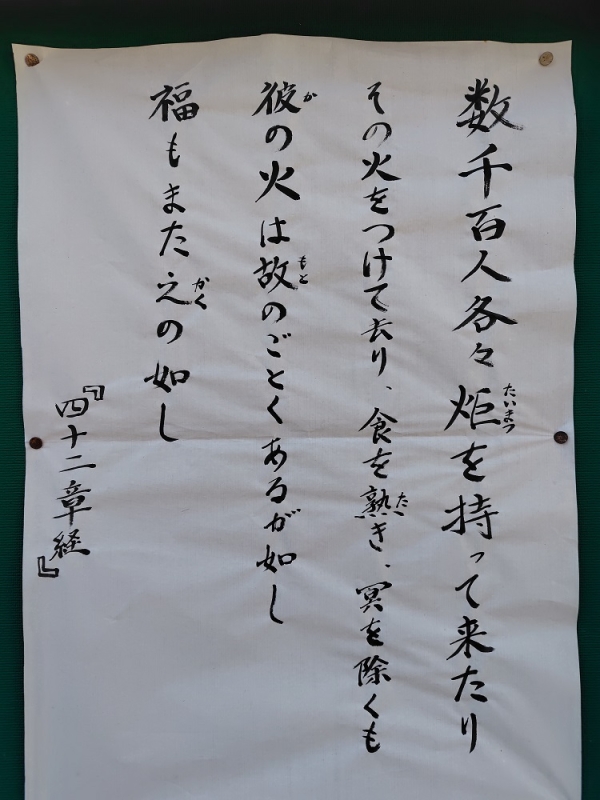 数千百人各々炬を持って来たり
たいまつ
その火をつけて去り、食を熟き、冥を除くも
た
彼の火は故のごとくあるが如し
か
もと
福もまた之の如し
かく
『四十二章経』